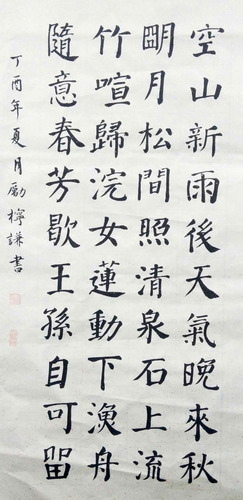 空山新雨後天氣晚來秋
朙月松間照清泉石上流
竹喧歸浣女蓮動下漁舟
隨意春芳歇王孫自可留
丁酉年夏月勵檸謙書